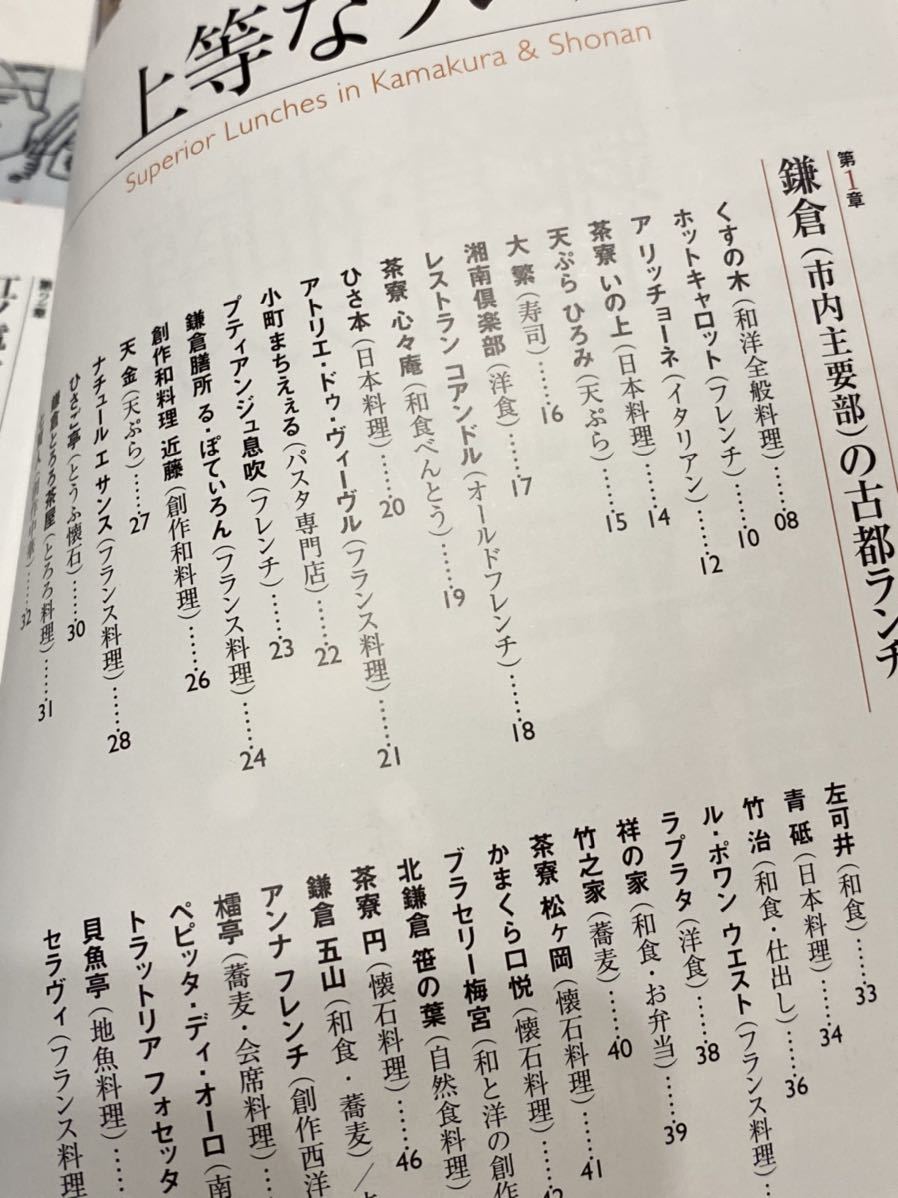 上等な
Superior Lunches in Kamakura & Shonan
第1章
鎌倉(市内主要部)の古都ランチ
くすの木(和洋全般料理)……08
ホットキャロット(フレンチ)……10
ア リッチョーネ(イタリアン)……12
茶寮 いの上(日本料理)……14
天ぷら ひろみ(天ぷら)……15
大繁(寿司)……16
湘南倶楽部(洋食)……17
レストラン コアンドル(オールドフレンチ)……18
茶寮 心々庵(和食べんとう)……19
ひさ本(日本料理)……20
アトリエ・ドゥ・ヴィーヴル(フランス料理)……21
小町 まちえぇる(パスタ専門店)……22
プティアンジュ息吹(フレンチ)……23
鎌倉膳所 る・ぽてぃろん(フランス料理)……24
創作和料理 近藤(創作和料理)……26
天金(天ぷら)……27
ナチュール エ サンス(フランス料理)……28
ひさご亭(とうふ懐石)……30
鎌倉とろろ茶屋(とろろ料理)……31
……32
左可井(和食)……33
青砥(日本料理)……34
竹治(和食・仕出し)……36
ル・ポワン ウエスト(フランス料理)…
ラプラタ(洋食)……38
祥の家(和食・お弁当)……39
竹之家(蕎麦)……40
茶寮 松ヶ岡(懐石料理)……41
かまくら口悦(懐石料理)……42
ブラセリー梅宮(和と洋の創作
北鎌倉 笹の葉(自然食料理)
茶寮 円(懐石料理)……46
鎌倉 五山(和食・蕎麦)/
アンナ フレンチ(創作西洋
櫺亭(蕎麦・会席料理)…
ペピッタ・ディ・オーロ(南
トラットリア フォセッタ
貝魚亭(地魚料理)……
セラヴィ(フランス料理
第2章